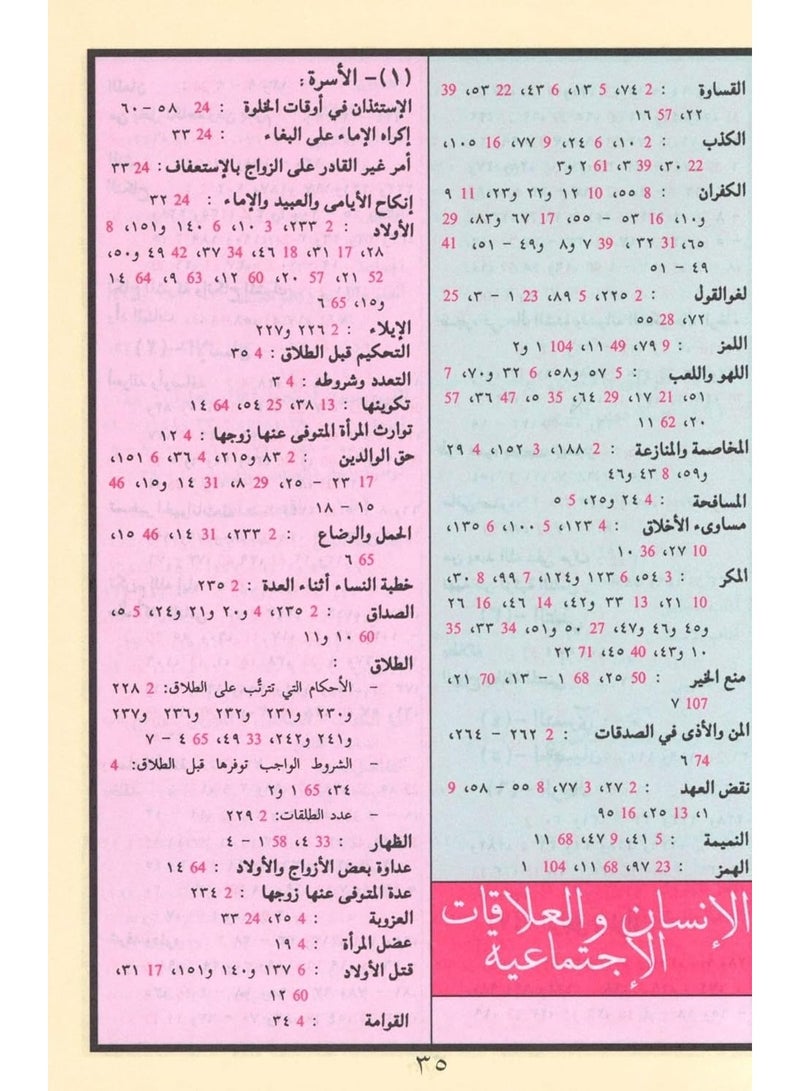 القساوة : 2 ٧٤، 5 ١٣، 6 ٤٣، 22 ٥٣، 39
٢٢، 57 ١٦
الكذب : 2 ١٠، 6 ٢٤، 9 ٧٧، 16 ١٠٥،
22 ٣٠، 39 ٣، 61 ٢ و٣
الكفران : 8 ٥٥، 10 ١٢ و٢٢ و٢٣، 11 ٩
و١٠، 16 ٥٣ – ٥٥، 17 ٦٧ و٨٣، 29
٦٥، 31 ٣٢، 39 ٧ و٨ و٤٩ – ٥١، 41
٤٩ – ٥١
لغو القول : 2 ٢٢٥، 5 ٨٩، 23 ١ – ٣، 25
٧٢، 28 ٥٥
اللمز : 9 ٧٩، 49 ١١، 104 ١ و٢
اللهو واللعب : 5 ٥٧ و٥٨، 6 ٣٢ و٧٠، 7
٥١، 21 ١٧، 29 ٦٤، 35 ٥، 47 ٣٦، 57
٢٠، 62 ١١
المخاصمة والمنازعة : 2 ١٨٨، 3 ١٥٢، 4 ٢٩
و٥٩، 8 ٤٣ و٤٦
المسافحة : 4 ٢٤ و٢٥، 5 ٥
مساوىء الأخلاق : 4 ١٢٣، 5 ١٠٠، 6 ١٣٥،
10 ٢٧، 36 ١٠
المكر : 3 ٥٤، 6 ١٢٣ و١٢٤، 7 ٩٩، 8 ٣٠،
10 ٢١، 13 ٣٣ و٤٢، 14 ٤٦، 16 ٢٦
و٤٥ و٤٦ و٤٧، 27 ٥٠ و٥١، 34 ٣٣، 35
١٠ و٤٣، 40 ٤٥، 71 ٢٢
منع الخير : 50 ٢٥، 68 ١ – ١٣، 70 ٢١،
107 ٧
المن والأذى في الصدقات : 2 ٢٦٢ – ٢٦٤،
74 ٦
نقض العهد : 2 ٢٧، 3 ٧٧، 8 ٥٥ – ٥٨، 9
١، 13 ٢٥، 16 ٩٥
النميمة : 5 ٤١، 9 ٤٧، 68 ١١
الهمز : 23 ٩٧، 68 ١١، 104 ١
الإنسان والعلاقات
الإجتماعية
(١)– الأسرة :
الإستئذان في أوقات الخلوة : 24 ٥٨ – ٦٠
إكراه الإماء على البغاء : 24 ٣٣
أمر غير القادر على الزواج بالإستعفاف: 24 ٣٣
إنكاح الأيامى والعبيد والإماء : 24 ٣٢
الأولاد : 2 ٢٣٣، 3 ١٠، 6 ١٤٠ و١٥١، 8
٢٨، 17 ٣١، 18 ٤٦، 34 ٣٧، 42 ٤٩ و٥٠،
52 ٢١، 57 ٢٠، 60 ١٢، 63 ٩، 64 ١٤
و١٥، 65 ٦
الإيلاء : 2 ٢٢٦ و٢٢٧
التحكيم قبل الطلاق : 4 ٣٥
التعدد وشروطه : 4 ٣
تكوينها : 13 ٣٨، 25 ٥٤، 64 ١٤
توارث المرأة المتوفى عنها زوجها : 4 ١٢
حق الوالدين : 2 ٨٣ و٢١٥، 4 ٣٦، 6 ١٥١،
17 ٢٣ – ٢٥، 29 ٨، 31 ١٤ و١٥، 46
١٥ – ١٨
الحمل والرضاع : 2 ٢٣٣، 31 ١٤، 46 ١٥،
65 ٦
خطبة النساء أثناء العدة : 2 ٢٣٥
الصداق : 2 ٢٣٥، 4 و٢٠ و٢١ و٢٤، 5 ٥،
60 ١٠ و١١
الطلاق :
– الأحكام التي تترتّب على الطلاق: 2 ٢٢٨
و٢٣٠ و٢٣١ و٢٣٢ و٢٣٦ و٢٣٧
و٢٤١ و٢٤٢، 33 ٤٩، 65 ٤ – ٧
– الشروط الواجب توفرها قبل الطلاق: 4
٣٤، 65 ١ و٢
– عدد الطلقات: 2 ٢٢٩
الظهار : 33 ٤، 58 ١ – ٤
عداوة بعض الأزواج والأولاد : 64 ١٤
عدة المتوفى عنها زوجها : 2 ٢٣٤
العزوبة : 4 ٢٥، 24 ٣٣
عضل المرأة : 4 ١٩
قتل الأولاد : 6 ١٣٧ و١٤٠ و١٥١، 17 ٣١،
60 ١٢
القوامة : 4 ٣٤
٣٥